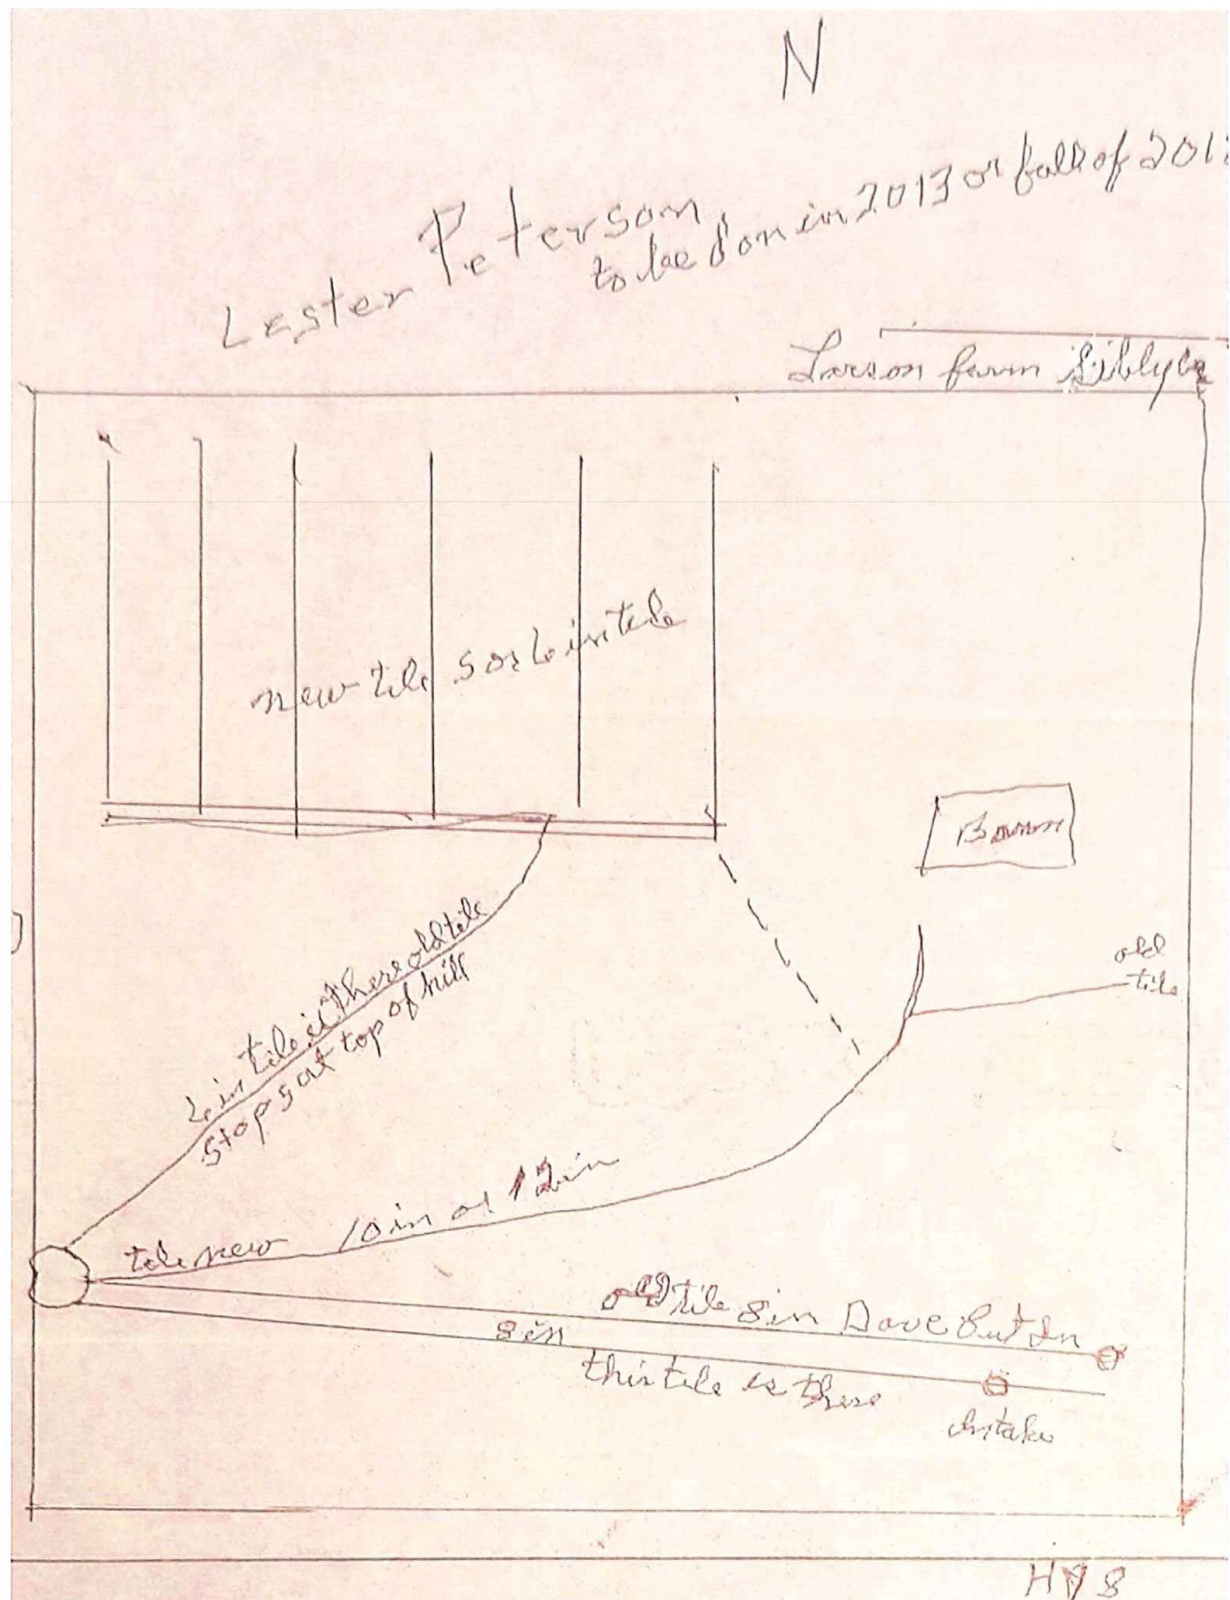 N
Lester Peterson
to be don in 2013 or fall of 201
Larson farm Sibly
new tile 5 or 6 in tile
Barn
old
tile
6 in tile is there old tile
stops at top of hill
tile new 10 in or 12 in
old tile 8 in Dave Put In
8 in
this tile is there
Intake
8